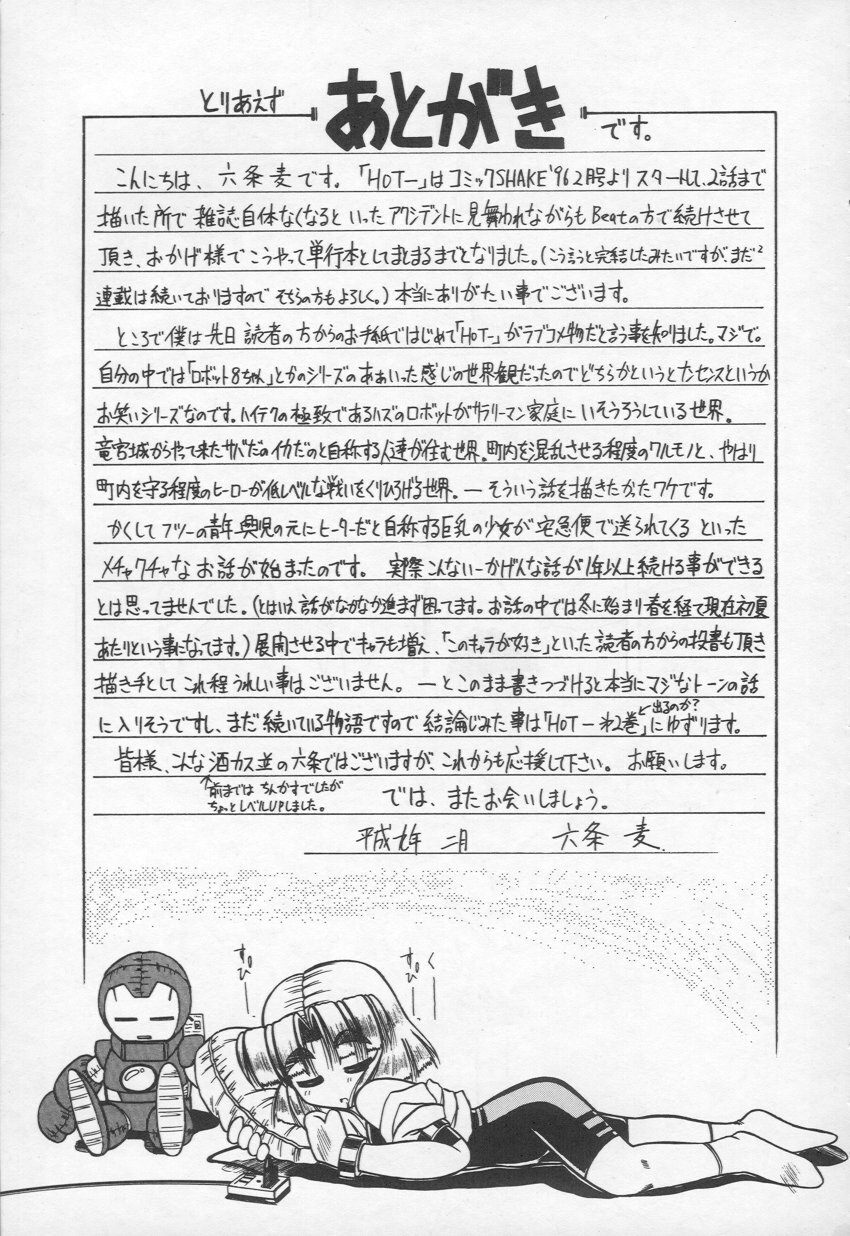 とりあえず
あとがき
です。
こんにちは、六条麦です。「HOT―」はコミックSHAKE'96 2月号よりスタートして、2話まで
描いた所で雑誌自体なくなるといったアクシデントに見舞われながらもBeatの方で続けさせて
頂き、おかげ様でこうやって単行本としてまとまるまでとなりました。(こう言うと完結したみたいですがまだ²
連載は続いておりますのでそちらの方もよろしく。)本当にありがたい事でございます。
ところで僕は先日読者の方からのお手紙ではじめて「HOT―」がラブコメ物だと言う事を知りました。マジで。
自分の中では「ロボット8ちゃん」とかのシリーズのあぁいった感じの世界観だったのでどちらかというとナンセンスというか
お笑いシリーズなのです。ハイテクの極致であるハズのロボットがサラリーマン家庭にいそうろうしている世界。
竜宮城からやって来たサバだのイカだのと自称する人達が住む世界。町内を混乱させる程度のワルモノと、やはり
町内を守る程度のヒーローが低レベルな戦いをくりひろげる世界。―そういう話を描きたかったワケです。
かくしてフツーの青年興児の元にヒーターだと自称する巨乳の少女が宅急便で送られてくるといった
メチャクチャなお話が始まったのです。 実際こんないーかげんな話が1年以上続ける事ができる
とは思ってませんでした。(とはいえ話がなかなか進まず困ってます。お話の中では冬に始まり春を経て現在初夏
あたりという事になってます。)展開させる中でキャラも増え、「このキャラが好き」といった読者の方からの投書も頂き
描き手としてこれ程うれしい事はございません。―とこのまま書きつづけると本当にマジなトーンの話
に入りそうですし、まだ続いている物語ですので結論じみた事は「HOT―第2巻」にゆずります。
と出るのか?
皆様、こんな酒カス並の六条ではございますが、これからも応援して下さい。お願いします。
↑前まではちんかすでしたが
ちょっとレベルUPしました。
では、またお会いしましょう。
平成九年 二月 六条 麦
すぴ――
すぴ――
く